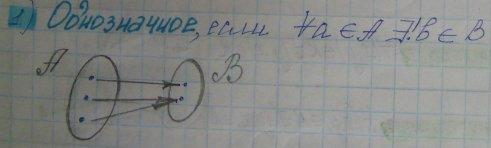 1) Однозначное, если ∀a ∈ A ∃!b ∈ B
A B